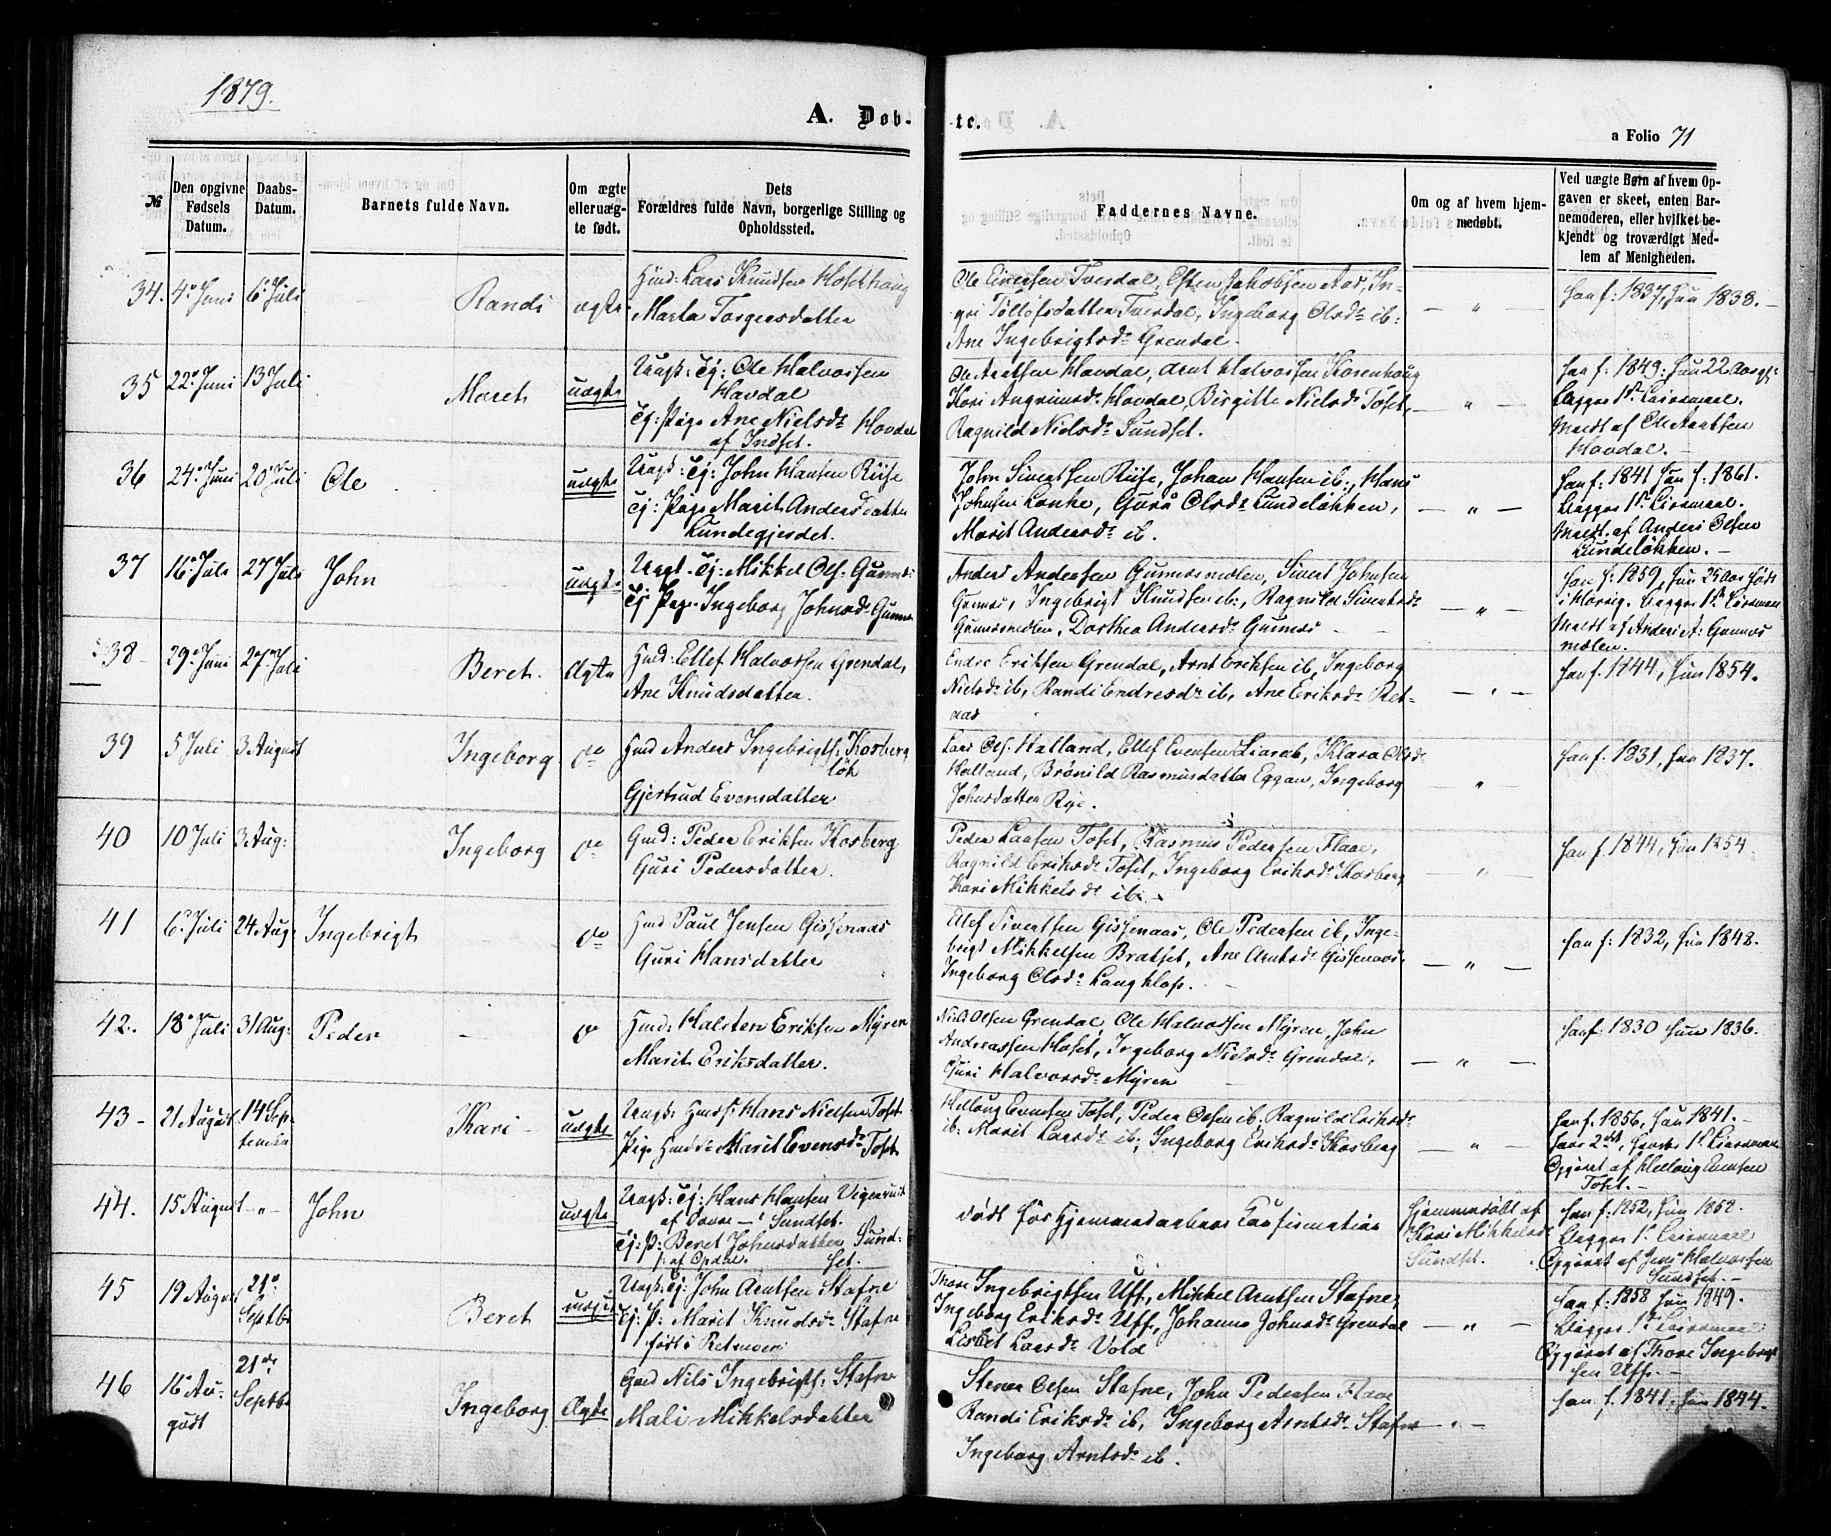 1879.
A. Døb-
te.
a Folio 71
№
Den opgivne Fødsels Datum.
Daabs-Datum.
Barnets fulde Navn.
Om ægte eller uæg-te født.
Dets
Forældres fulde Navn, borgerlige Stilling og Opholdssted.
Faddernes Navne.
Om og af hvem hjem-medøbt.
Ved uægte Børn af hvem Op-gaven er skeet, enten Bar-nemoderen, eller hvilket be-kjendt og troværdigt Med-lem af Menigheden.
34. 4de Juni 6 Juli Randi ægte
Lars Knudsen
Marta Torgersdatter
Ole Einersen Tverdal, Esten Jakobsen Aas, In-
gri Tollofsdatter Tverdal, Ingeborg Olsdr ib:
Ane Ingebrigtsdr Grendal.
— " —
Han f: 1837, Hun 1838. —
35 22de Juni 13 Juli Maret uægte
Ungk: Tj: Ole Halvorsen
Havdal
Tj: Pige Ane Nielsdr Hovdal
af Indset.
Ole Arntsen Havdal, Arnt Halvorsen
Kari Angrimsdr Hovdal, Birgitte Nielsdr Toset,
Ragnild Nielsdr Sundset.
— " —
Han f: 1849: Hun 22 Aar g:
Begges 1ste Leiermaal.
Meldt af Ole Arntsen
Hovdal. —
36 24de Juni 20 Juli Ole uægte
Ungk: Tj: John Hansen Riise
Tj: Pige Marit Andersdatter
Lundegjerdet.
John Sivertsen Riise, Johan Hansen ib:, Hans
Johnsen Lønke, Guro Olsdr Lundeløkken,
Marit Andersdr ib.
— " —
Han f: 1841 Hun f. 1861.
Begges 1ste Leiermaal.
Meldt. af Anders Olsen
Lundeløkken. —
37 16de Juli 27 Juli John uægte
Ungk. Tj: Mikkel Ols. Gunnes
Tj Pige Ingeborg Johnsdr Gunnes
Anders Andersen Gunnesmælen, Sivert Johnsen
Gunnes, Ingebrigt Knudsen ib:, Ragnild Sivertsdr
Gunnesmælen, Dorthea Andersdr Gunnes —
— " —
Han f: 1859, Hun 25 Aar født
i Horrig. Begges 1ste Leiermaal
Meldt af Anders A: Gunnes
mælen.
38 — 29de Juni 27de Juli Beret. Ægte
Hmd: Ellef Halvorsen Grendal,
Ane Knudsdatter.
Endre Eriksen Grendal, Arnt Eriksen ib, Ingeborg
Nielsdr ib, Randi Endresdr ib, Ane Eriksdr Ret-
aas
— " —
Han f: 1844, Hun 1854.
39 5 Juli 3 August Ingeborg do
Hmd Anders Ingebrigts: Kosberg
løk
Gjertrud Evensdatter
Lars Ols. Halland, Ellef Evensen Liarab, Klara Olsdr
Halland, Brønild Rasmusdatter Eggan, Ingeborg
Johnsdatter Rye.
— " —
Han f: 1831, Hun 1837.
40 10 Juli 3 Aug: Ingeborg do
Gmd: Peder Eriksen Kosberg
Guri Pedersdatter.
Peder Larsen Toset, Rasmus Pedersen Flaae,
Ragnild Eriksdr Toset, Ingeborg Eriksdr Kosberg,
Kari Mikkelsdr ib. —
— " —
Han f. 1844, Hun 1854.
41 6te Juli 24 Aug: Ingebrigt do
Hmd Paul Jensen Gissenaas
Guri Hansdatter
Ellef Sivertsen Gissenaas, Ole Pedersen ib, Inge-
brigt Mikkelsen Bratset, Ane Arntsdr Gissenaas
Ingeborg Olsdr Langklop.
— " —
Han f: 1832, Hun 1848.
42. 18de Juli 31 Aug: Peder — do
Hmd: Halsten Eriksen Myren
Marit Eriksdatter.
Niels Olsen Grendal, Ole Halvorsen Myren, John
Andreassen Hoset, Ingeborg Nielsdr Grendal,
Guri Halvorsdr Myren
— " —
Han f: 1830 Hun 1836.
43 — 21 August 14 Sep-
tember Kari — uægte
Ungk: Hmds: Hans Nielsen Toset
Pige Hmdd: Marit Evensdr Toset
Helloug Evensen Toset, Peder Olsen ib: Ragnild Eriksdr
ib: Marit Larsdr ib:, Ingeborg Eriksdr Kosberg
— " —
Han f. 1856, Hun 1841. —
Hans 2det, Hendes 1ste Leiermaal
Opgivet af Helloug Evensen
Toset. —
44. 15 August — " — John uægte
Ungk: Tj: Hans Hansen
af Dovre — Sundset.
Tj: P: Beret Johnsdatter Sund-
f. af Opdal. set.
Død før Hjemmedaabens Konfirmation
Hjemmedøbt af
Kari Mikkelsdr
Sundset.
Han f: 1852, Hun 1858.
Begges 1ste Leiermaal
Opgivet af Jens Halvorsen
Sundset. —
45 19 August 21de
Septbr Beret uægte
Ungk: Tj: John Arntsen Stafne
Tj: P: Marit Knudsdr Stafne
født i Retmoen
Thore Ingebrigtsen Uff, Mikkel Arntsen Stafne,
Ingeborg Eriksdr Uff, Johanna Johnsdr Grendal
Lisbet Larsdr Vold
— " —
Han f: 1858 Hun 1849.
Begges 1ste Leiermaal
Opgivet af Thore Ingebrigt
sen Uff. —
46 16de Au-
gust 21de
Septbr Ingeborg Ægte
Gmd Nils Ingebrigts: Stafne
Mali Mikkelsdatter
Stener Olsen Stafne, John Pedersen Flaae
Randi Eriksdr ib, Ingeborg Arntsdr Stafne
Ingeborg Arntsdr ib.
— " —
Han f. 1841, Hun 1844.